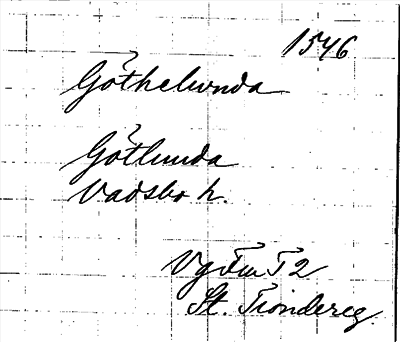 1546
Göthelunda
Götlunda
Vadsbo h.
Vg Fm T 2
St. Tiondereg.